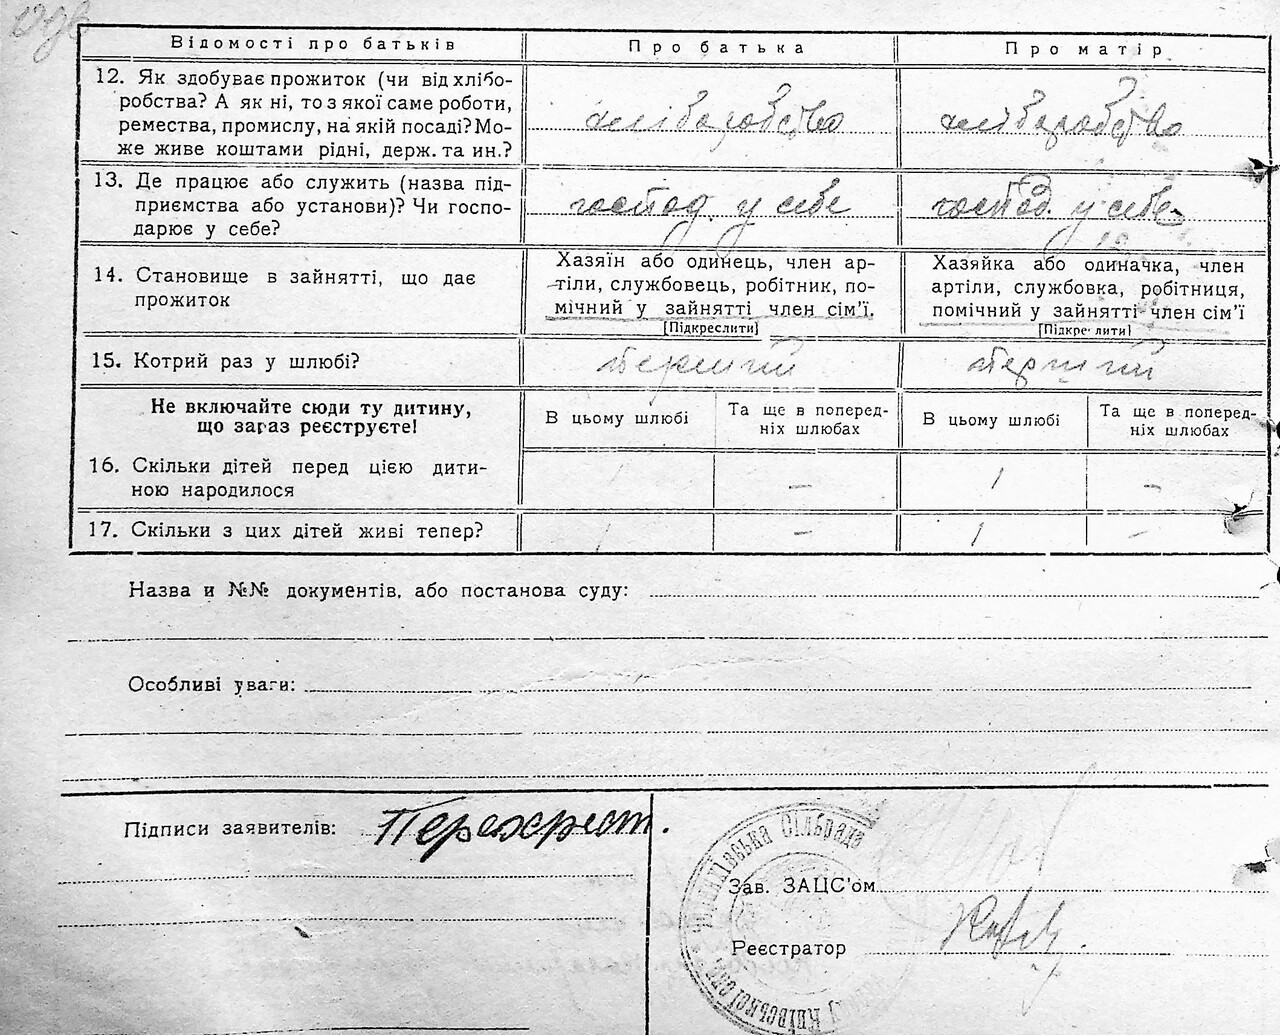 Відомості про батьків Про батька Про матір
12. Як здобуває прожиток (чи від хлібо-
робства? А як ні, то з якої саме роботи,
ремества, промислу, на якій посаді? Мо-
же живе коштами рідні, держ. та ин.?
хліборобство хліборобство
13. Де працює або служить (назва під-
приємства або установи)? Чи госпо-
дарює у себе?
господ. у себе господ. у себе
14. Становище в зайнятті, що дає
прожиток
Хазяїн або одинець, член ар-
тіли, службовець, робітник, по-
мічний у зайнятті член сім'ї.
[Підкреслити]
Хазяйка або одиначка, член
артіли, службовка, робітниця,
помічний у зайнятті член сім'ї
[Підкре лити]
15. Котрий раз у шлюбі? перший перший
Не включайте сюди ту дитину,
що зараз реєструєте!
В цьому шлюбі
Та ще в поперед-
ніх шлюбах
В цьому шлюбі
Та ще в поперед-
ніх шлюбах
16. Скільки дітей перед цією дити-
ною народилося
1 – 1 –
17. Скільки з цих дітей живі тепер? 1 – 1 –
Назва и №№ документів, або постанова суду:
Особливі уваги:
Підписи заявителів: Перехрест.
Зав. ЗАЦС'ом
Реєстратор
Сільрада
Київської